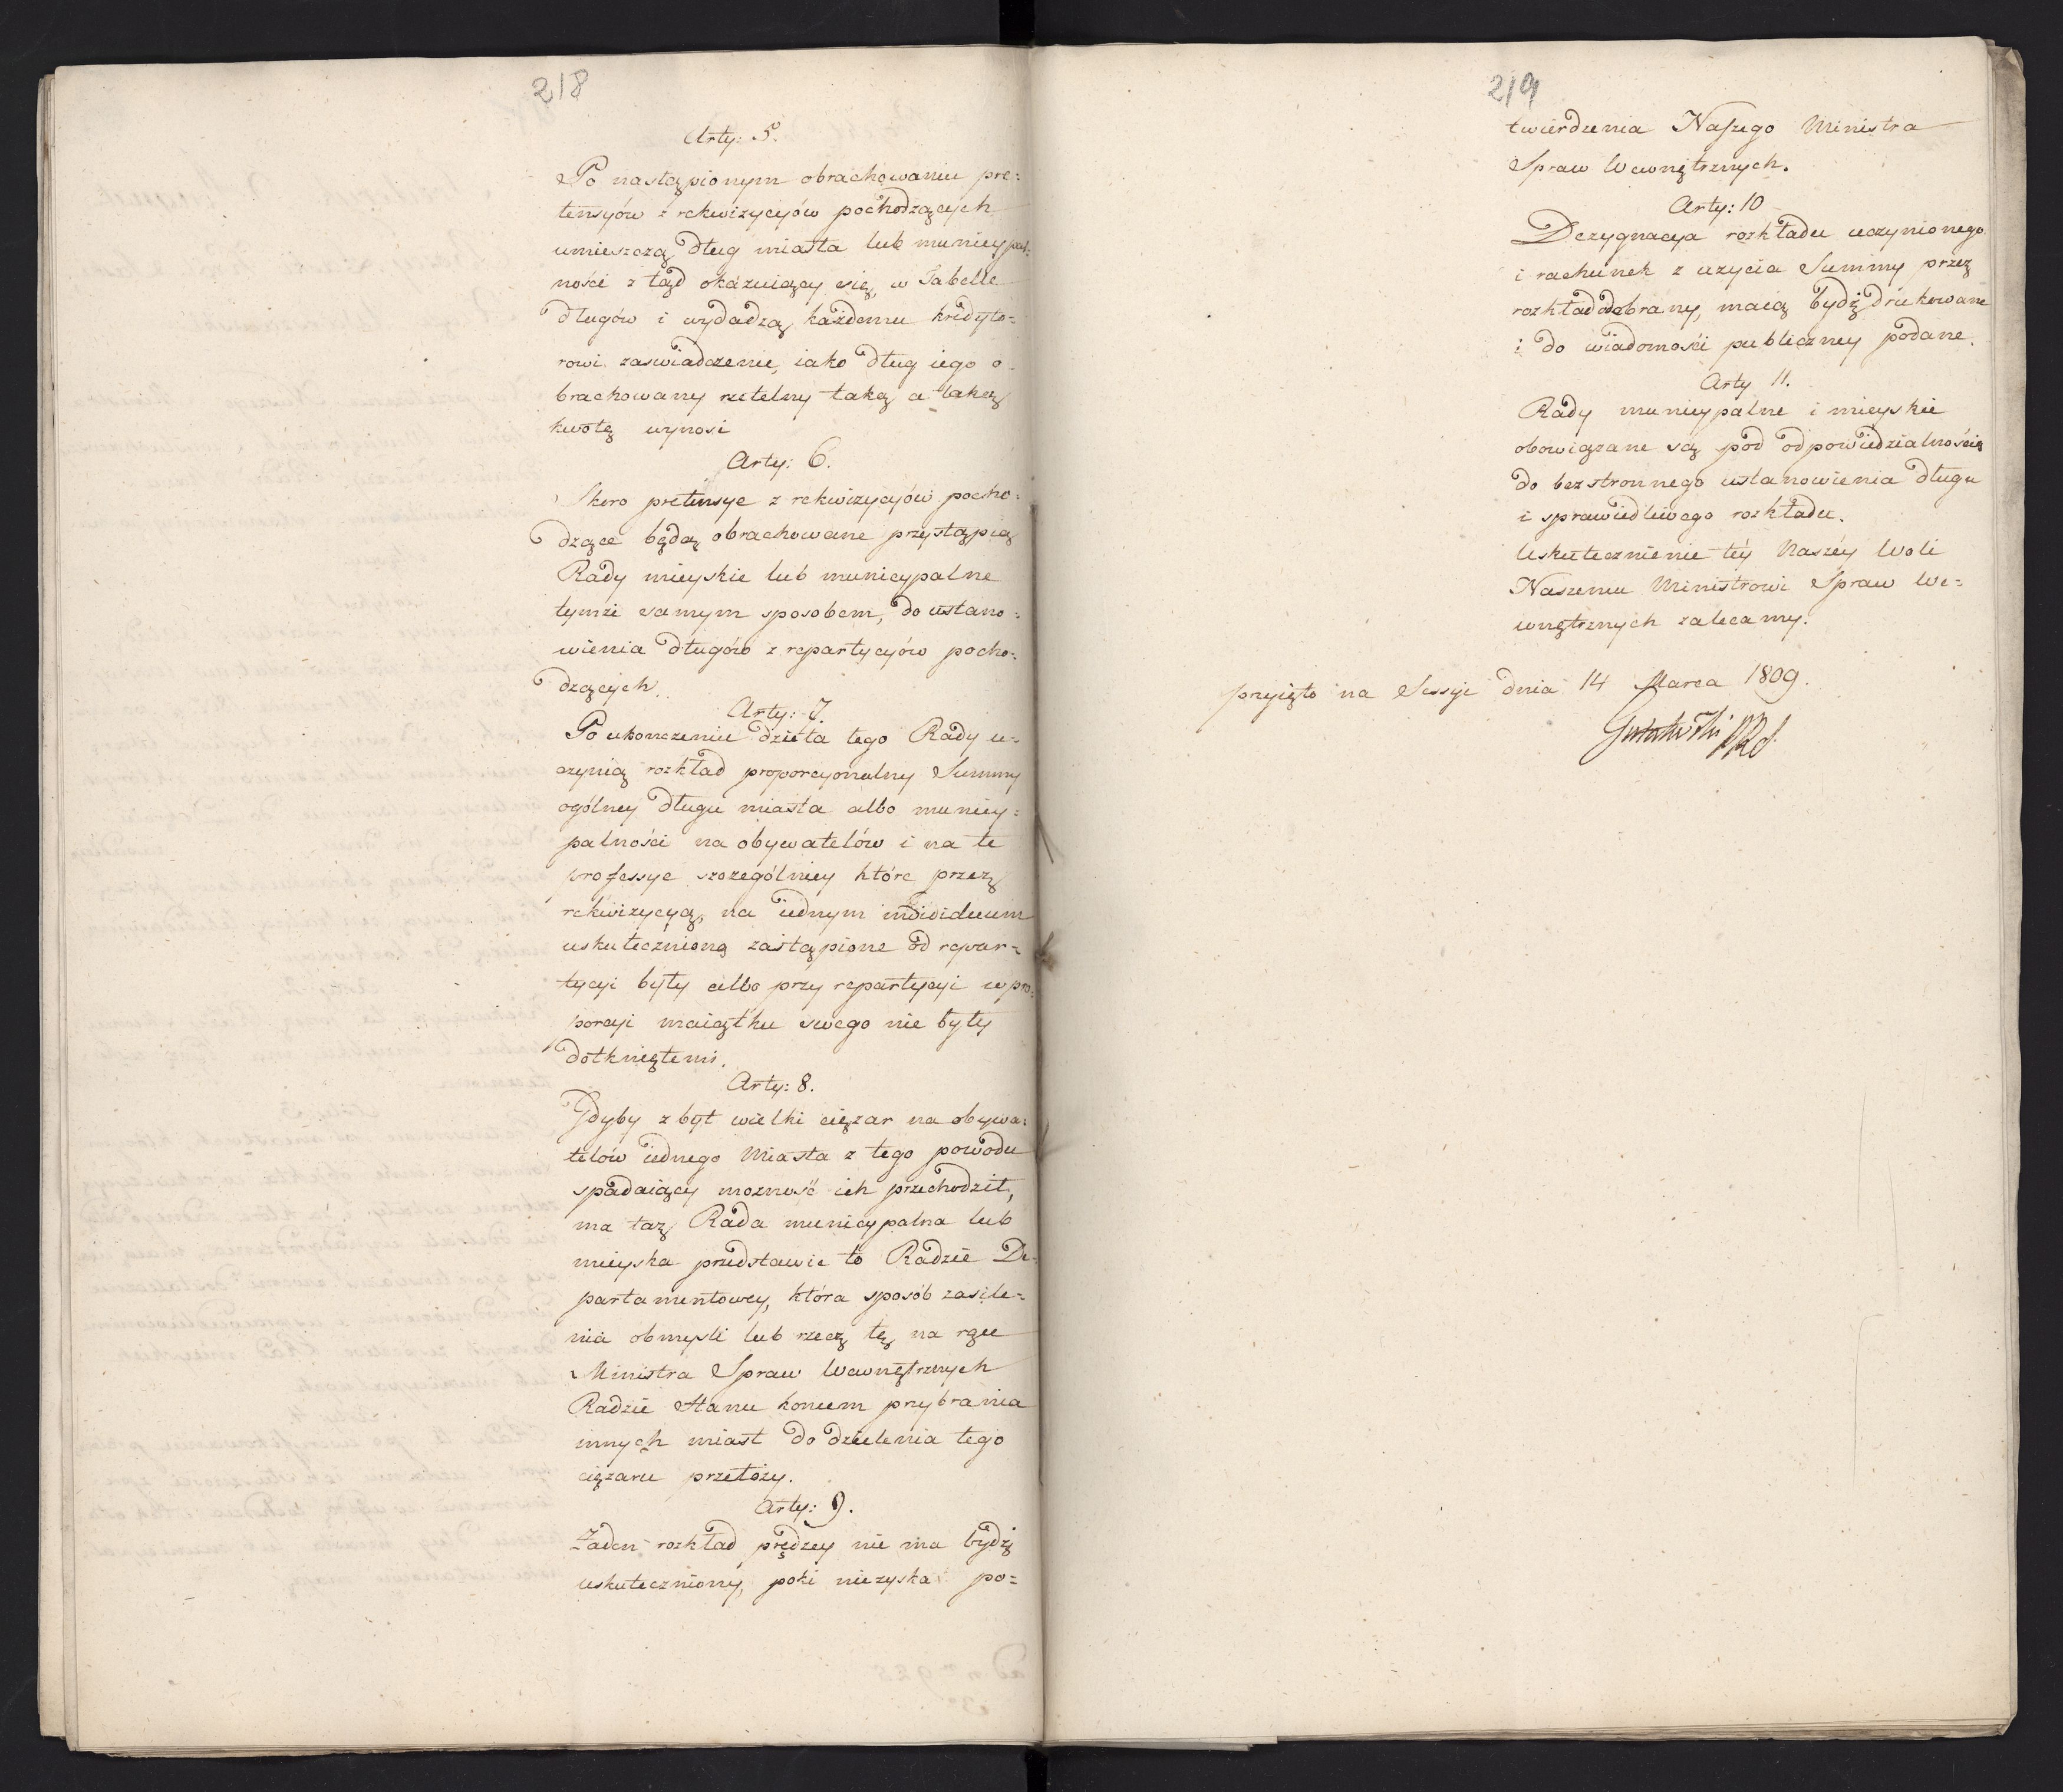 218
Arty: 5.
Po nastąpionym obrachowaniu pre:
tensyów z rekwizycyów pochodzących
umieszczą dług miasta lub municypal:
ności z tąd okazuiący się, w Tabelle
długów i wydadzą każdemu kredyto=
rowi zaswiadczenie, iako dług iego o
brachowany rzetelny taką a taką
kwotę wynosi
Arty: 6.
Skoro pretensye z rekwizycyów pocho:
dzące będą obrachowane przystąpią
Rady mieyskie lub municypalne
tymże samym sposobem, do ustano:
wienia długów z repartycyów pocho:
dzących.
Arty: 7.
Po ukonczeniu dzieła tego Rady u=
czynią rozkład proporcyonalny Summy
ogólney długu miasta albo municy=
palności na obywatelów i na te
professye szczególniey które przez
rekwizycyą, na iednym individuum
uskutecznioną zastąpione od repar=
tycyi były albo przy repartycyi w pro:
porcyi maiątku swego nie były
dotkniętemi.
Arty: 8.
Gdyby zbyt wielki ciężar na obywa:
telów iednego Miasta z tego powodu
spadaiący możność ich przechodził,
ma taż Rada municypalna lub
mieyska przedstawić to Radzie De-
partamentowey, która sposób zasile=
nia obmyśli lub rzecz tę na ręce
Ministra Spraw Wewnętrznych
Radzie Stanu koncem przybrania
innych miast do dzielenia tego
ciężaru przełoży.
Arty: 9.
Żaden rozkład prędzey nie ma bydź
uskuteczniony, poki niezyska po=
219
twierdzenia Naszego Ministra
Spraw Wewnętrznych.
Arty: 10
Dezygnacya rozkładu uczynionego
i rachunek z użycia Summy przez
rozkład odebrany, maią bydź drukowane
i do wiadomości publiczney podane.
Arty 11.
Rady municypalne i mieyskie
obowiązane są pod odpowiedzialnością
do bezstronnego ustanowienia długu
i sprawiedliwego rozkładu.
Uskutecznienie téy Naszéy Woli
Naszemu Ministrowi Spraw We=
wnętrznych zalecamy.
przyięto na Sessyi dnia 14 Marca 1809.
Gutakowski PRS.